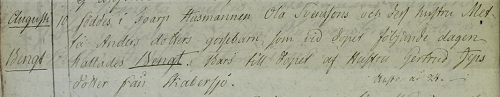 Augusti 10 föddes i Torp Husmannen Ola Svensons och dess hustru Met
ta Anders dotters gossebarn, som vid dopet följande dagen
Bengt kallades Bengt. Bars till dopet af Hustru Gertrud Jeps
dotter från Skabersjö.